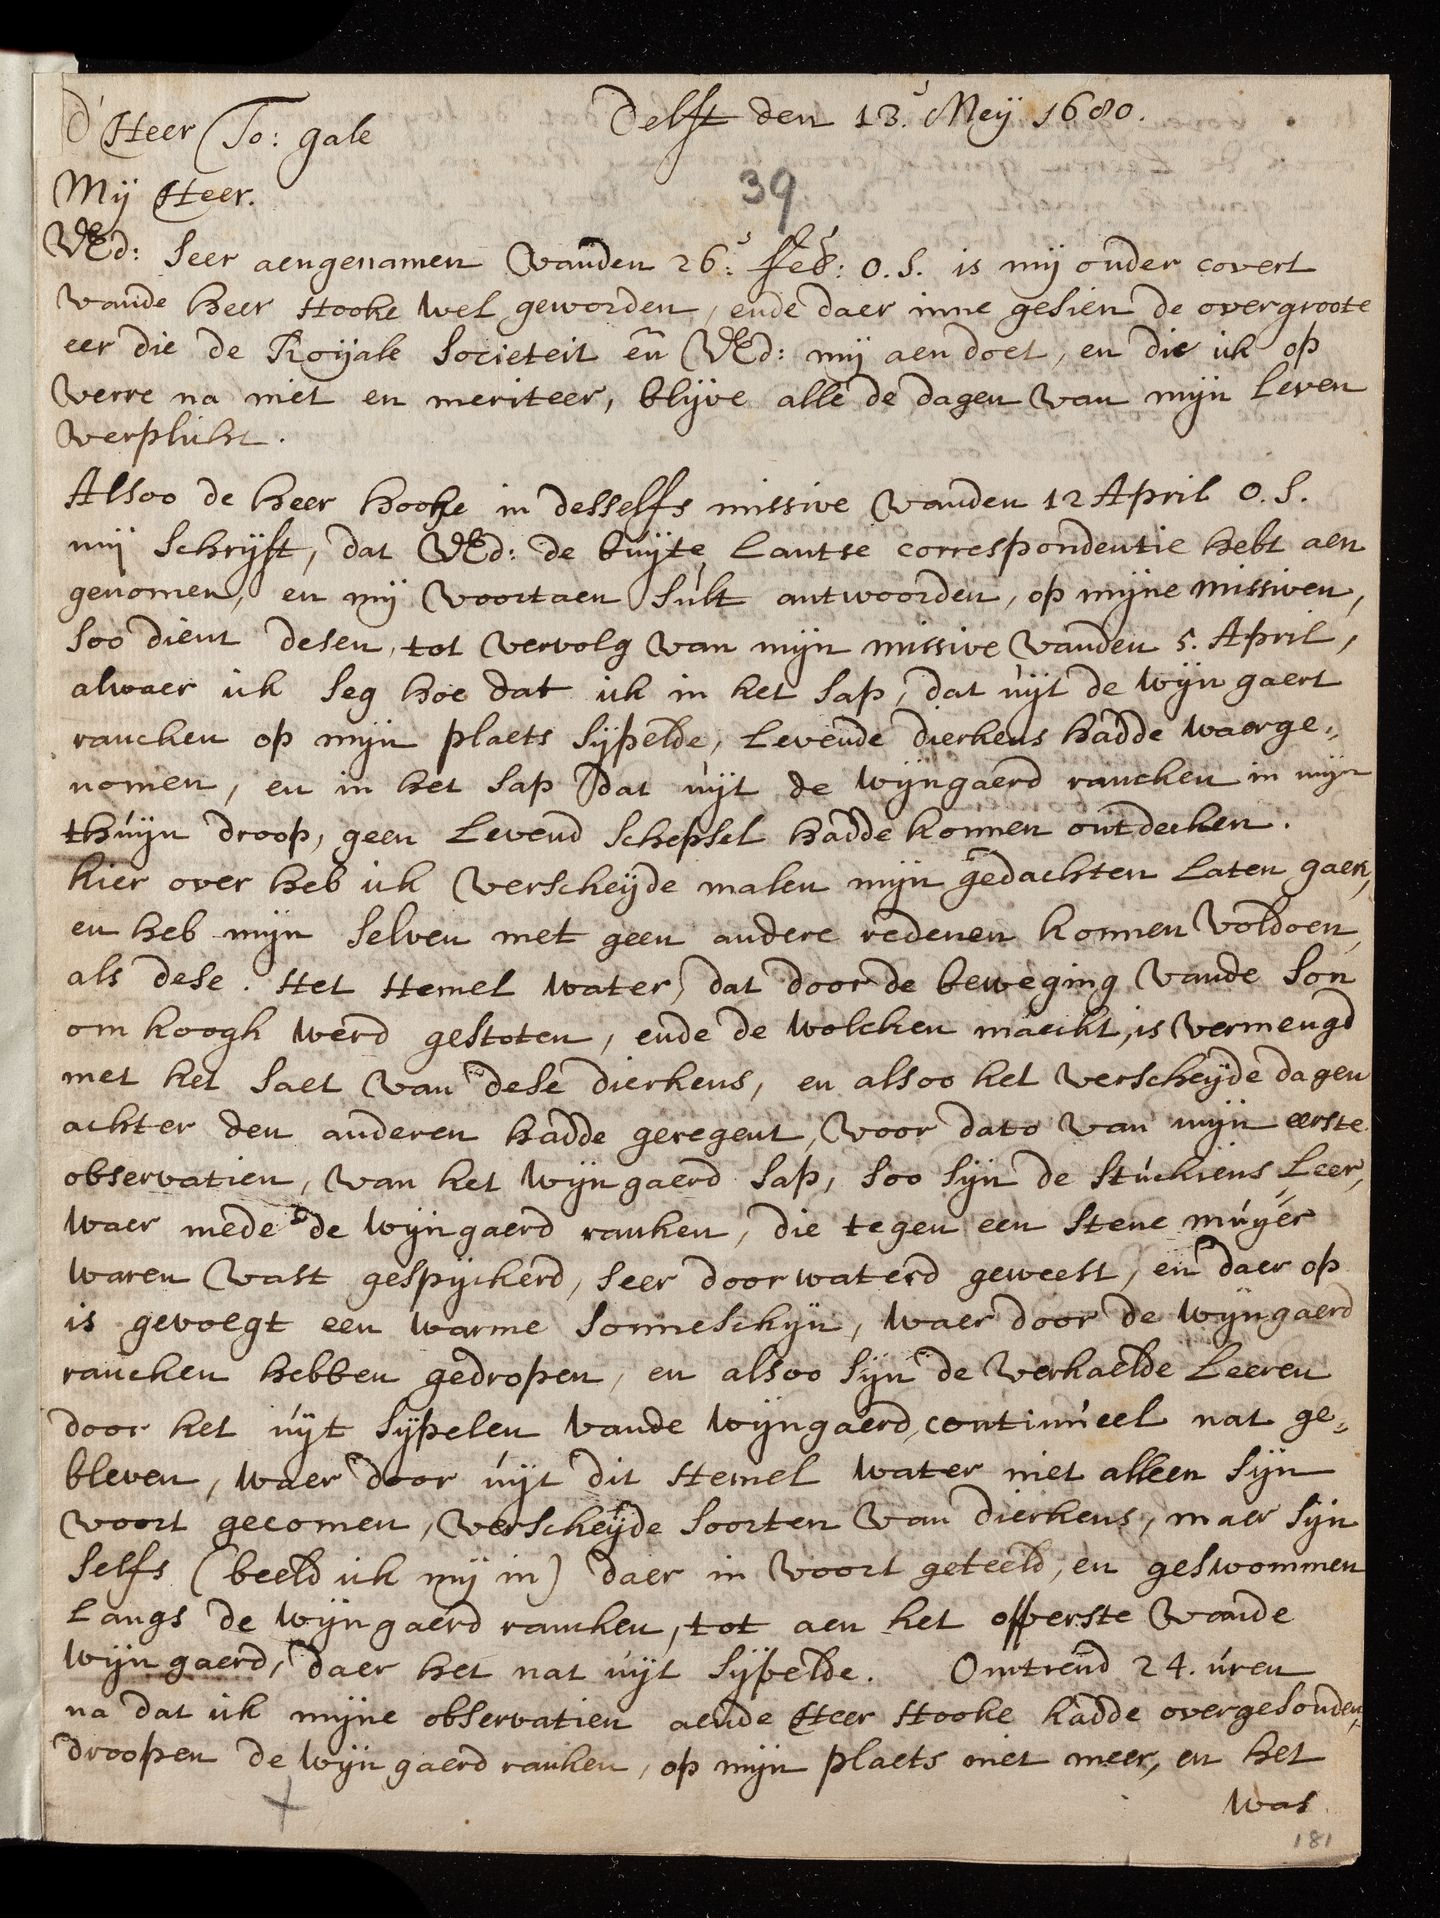 Delft den 13. Meij 1680.
D'Heer To: gale
39
Mij Heer.
WEd: seer aengenamen vanden 26: feb: o. s. is mij onder covert
vande heer Hooke wel geworden, ende daer inne gesien de overgroote
eer die de Roijale Societeit en WEd: mij aen doet, en die ik op
verre na niet en meriteer, blijve alle de dagen van mijn leven
verplicht.
Alsoo de heer hooke in desselfs missive vanden 12 April o. s.
mij schrijft, dat WEd: de buijte lantse correspondentie hebt aen
genomen, en mij voortaen sult antwoorden, op mijne missiven,
soo dient desen, tot vervolg van mijn missive vanden 5. April,
alwaer ik seg hoe dat ik in het sap, dat uijt de wijngaert
rancken op mijn plaets sijpelde, levende dierkens hadde waerge-
nomen, en in het sap dat uijt de wijngaerd rancken in mijn
thuijn droop, geen levend schepsel hadde konnen ontdecken.
hier over heb ik verscheijde malen mijn gedachten laten gaen,
en heb mijn selven met geen andere redenen konnen voldoen,
als dese. Het Hemel water, dat door de beweging vande son
om hoogh werd gestoten, ende de wolcken maeckt, is vermengd
met het saet van dese dierkens, en alsoo het verscheijde dagen
achter den anderen hadde geregent, voor dato van mijn eerste
observatien, van het wijngaerd sap, soo sijn de stuckiens leer,
waer mede de wijngaerd ranken, die tegen een stene muijer
waren vast gespijckerd, seer doorwaterd geweest, en daer op
is gevolgt een warme sonneschijn, waer door de wijngaerd
rancken hebben gedropen, en alsoo sijn de verhaelde leeren
door het uijt sijpelen vande wijngaerd, continueel nat ge-
bleven, waer door uijt dit Hemel water niet alleen sijn
voort gecomen, verscheijde soorten van dierkens, maer sijn
selfs (beeld ik mij in) daer in voort geteeld, en geswommen
langs de wijngaerd rancken, tot aen het opperste vande
wijngaerd, daer het nat uijt sijpelde. Omtrend 24. uren
na dat ik mijne observatien aende Heer Hooke hadde overgesonden,
droopen de wijngaerd ranken, op mijn plaets niet meer, en het
was
181